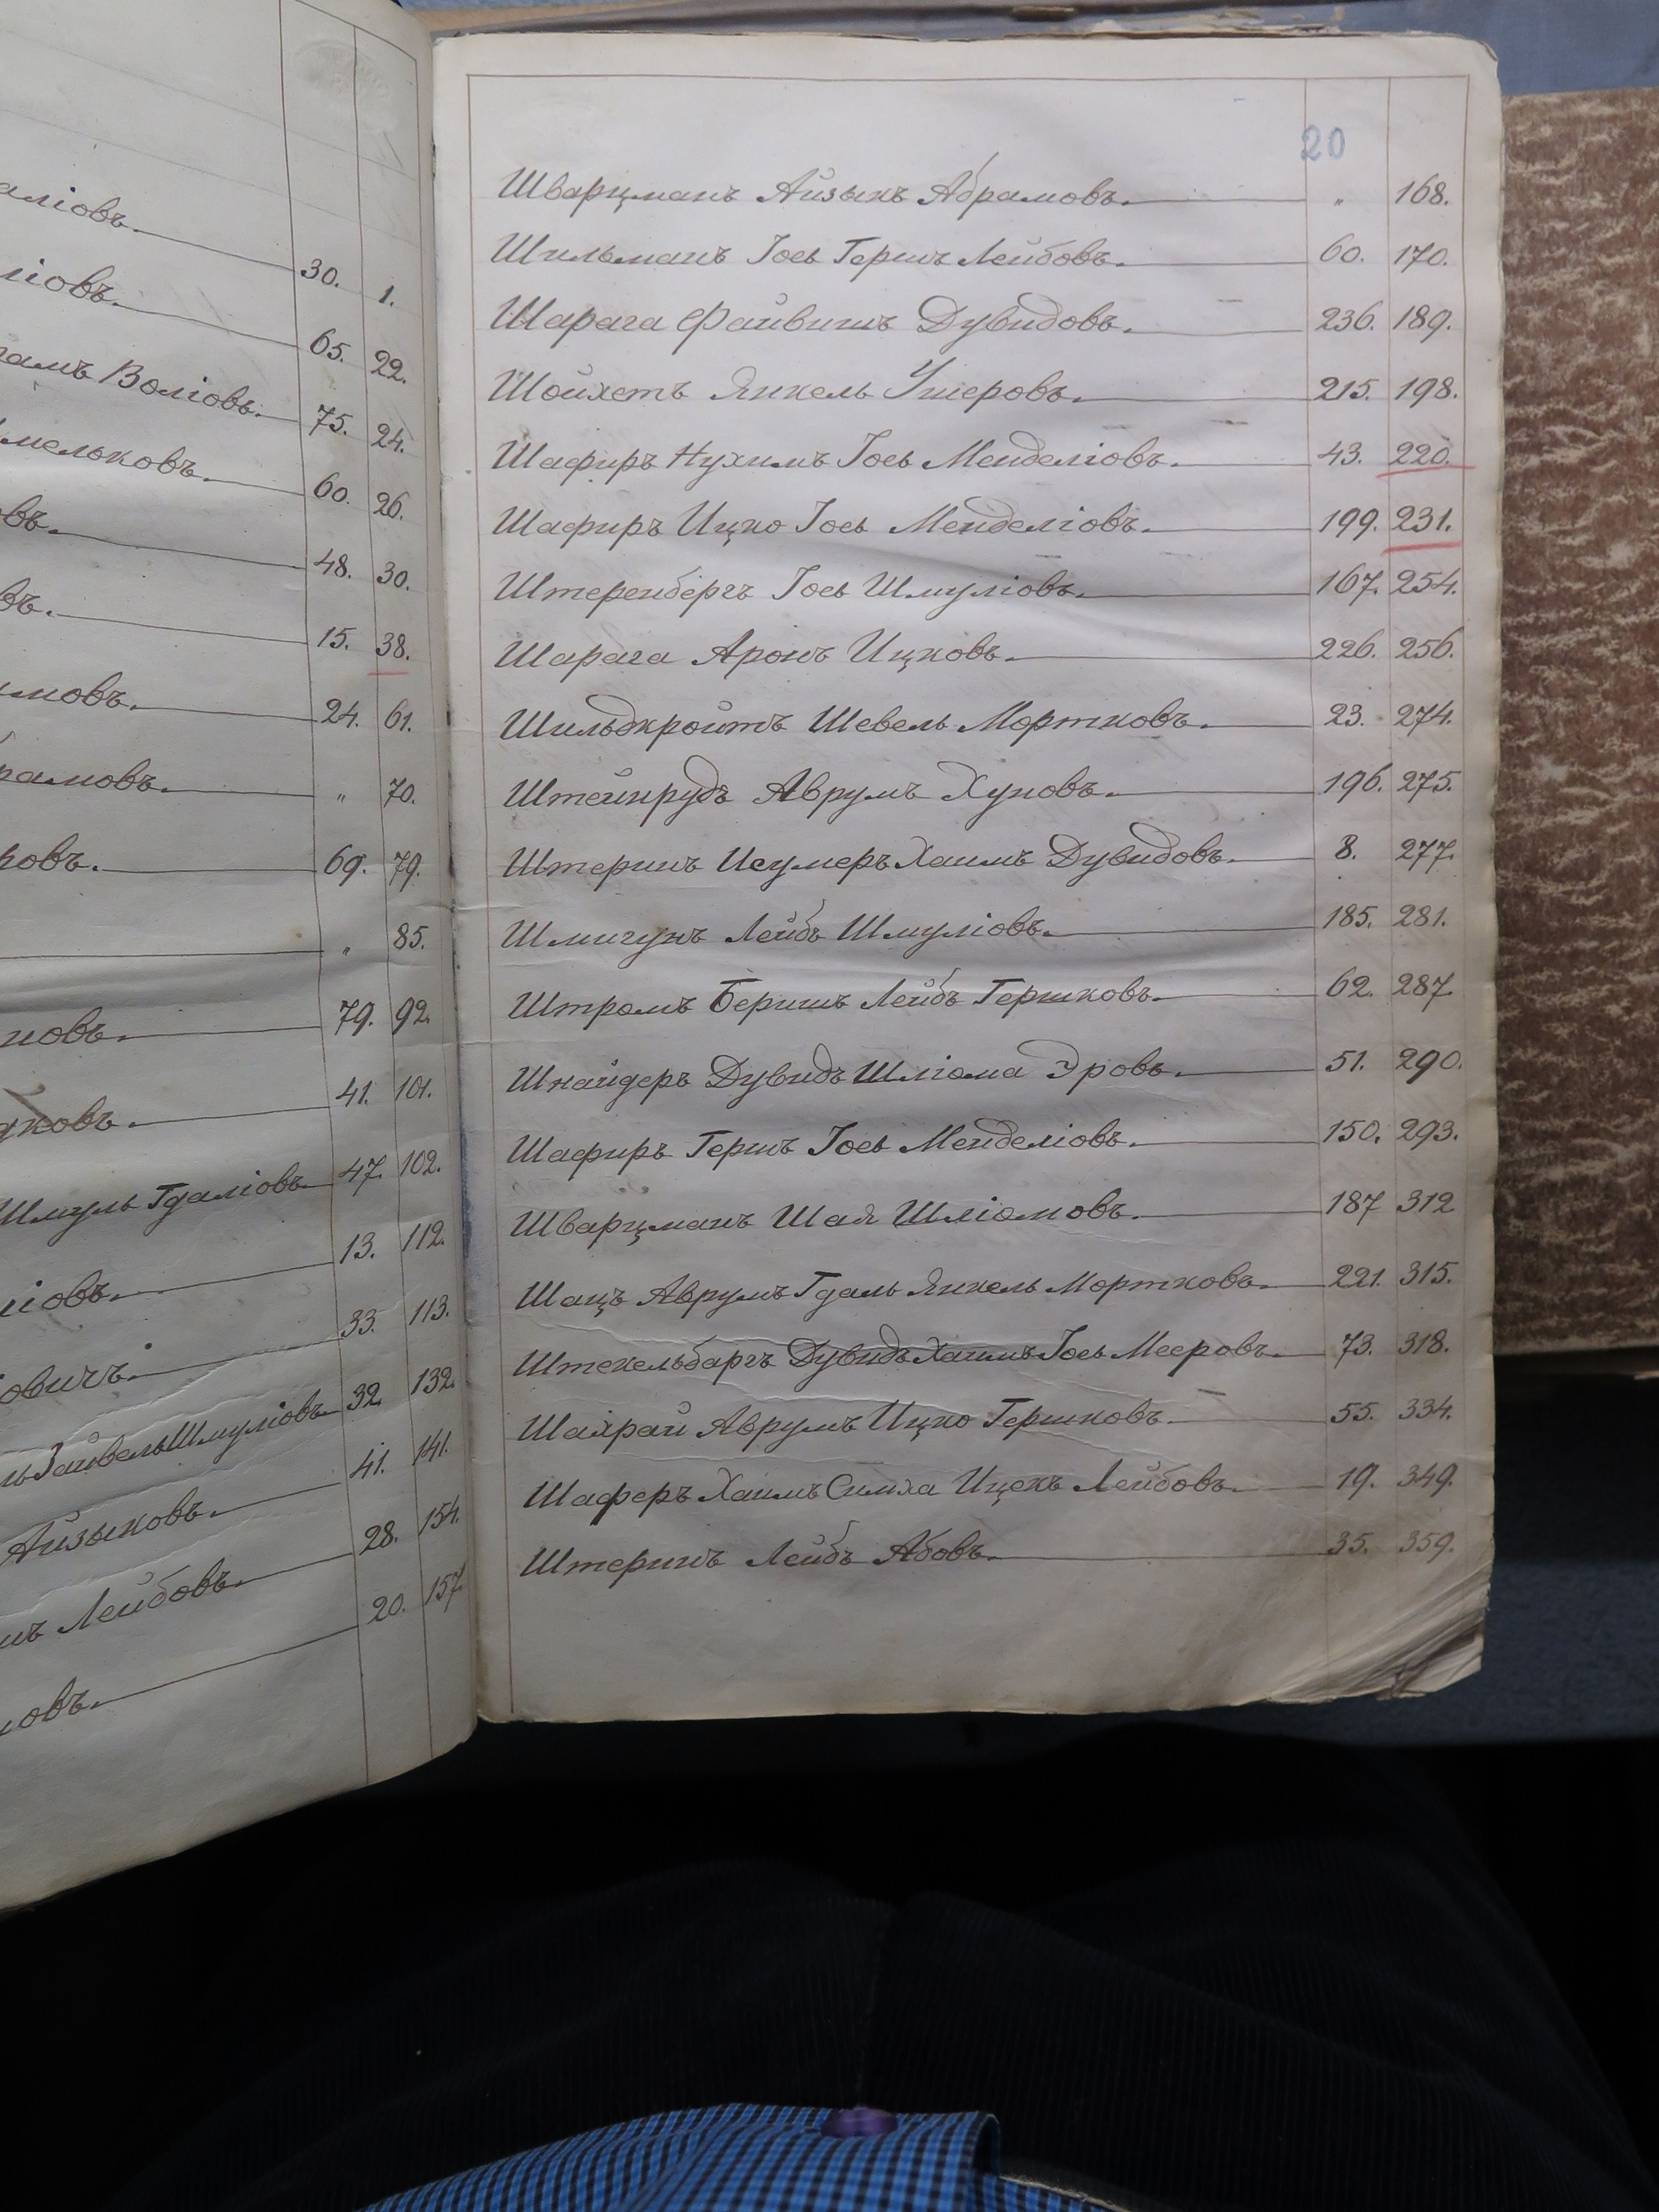 аліовъ. 30. 1.
ліовъ. 65. 22.
Воліовъ. 75. 24.
мельковъ. 60. 26.
овъ. 48. 30.
въ. 15. 38.
имовъ. 24. 61.
рамовъ. " 70.
ковъ. 69. 79.
" 85.
новъ. 79. 92.
ковъ. 41. 101.
Шмуль Гдаліовъ 47. 102.
ліовъ. 13. 112.
іовичъ. 33. 113.
Зайвель Шмуліовъ 32. 132.
Айзыковъ. 41. 141.
Лейбовъ. 28. 154.
овъ. 20. 157.
20
Шварцманъ Айзыкъ Абрамовъ. " 168.
Шильманъ Іось Гершъ Лейбовъ. 60. 170.
Шарага Файвишъ Дувидовъ. 236. 189.
Шойхетъ Янкель Ушеровъ. 215. 198.
Шафиръ Нухимъ Іось Менделіовъ. 43. 220.
Шафиръ Ицко Іось Менделіовъ. 199. 231.
Штеренбергъ Іось Шмуліовъ. 167. 254.
Шарага Аронъ Ицковъ. 226. 256.
Шильдкройтъ Шевель Мортковъ. 23. 274.
Штейнрудъ Аврумъ Хуновъ. 196. 275.
Штеринъ Исумеръ Хаимъ Дувидовъ. 8. 277.
Шмигунъ Лейбъ Шмуліовъ. 185. 281.
Штромъ Беришъ Лейбъ Гершковъ. 62. 287.
Шнайдеръ Дувидъ Шліома Эровъ. 51. 290.
Шафиръ Гершъ Іось Менделіовъ. 150. 293.
Шварцманъ Шая Шліомовъ. 187 312
Шацъ Аврумъ Гдаль Янкель Мортковъ. 221. 315.
Штекельбаргъ Дувидъ Хаимъ Іось Мееровъ. 73. 318.
Шахрай Аврумъ Ицко Гершковъ. 55. 334.
Шаферъ Хаимъ Симха Ицекъ Лейбовъ. 19. 349.
Штеринъ Лейбъ Абовъ. 35. 359.